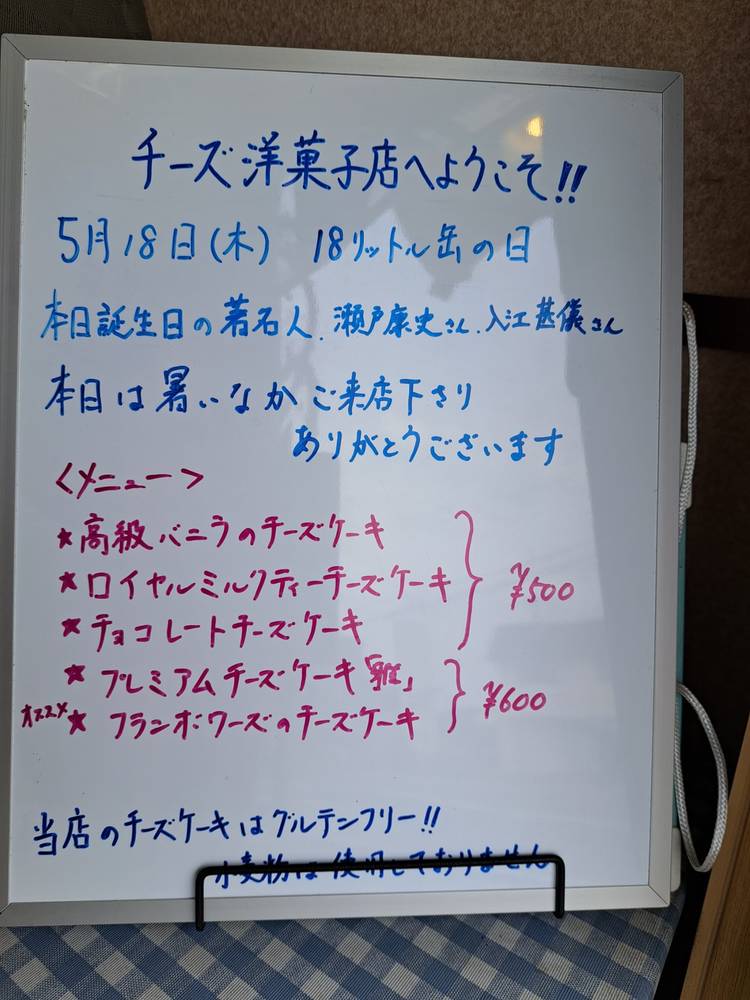 チーズ洋菓子店へようこそ!!
5月18日(木) 18リットル缶の日
本日誕生日の著名人.瀬戸康史さん.入江甚儀さん
本日は暑いなかご来店下さり
ありがとうございます
<メニュー>
★高級バニラのチーズケーキ
★ロイヤルミルクティーチーズケーキ
★チョコレートチーズケーキ
¥500
★プレミアムチーズケーキ「雅」
オススメ★フランボワーズのチーズケーキ
¥600
当店のチーズケーキはグルテンフリー!!
小麦粉は使用しておりません